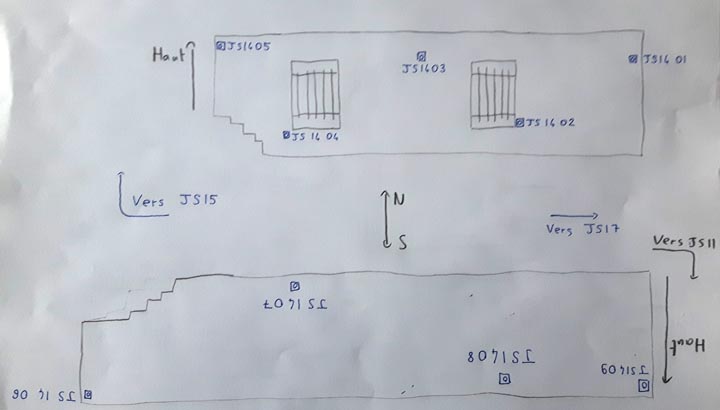 Haut
JS1405
JS1403
JS14 01
JS14 04
JS14 02
Vers JS15
N
S
Vers JS17
Vers JS11
Haut
JS 14 07
JS14 08
JS1409
JS 14 06